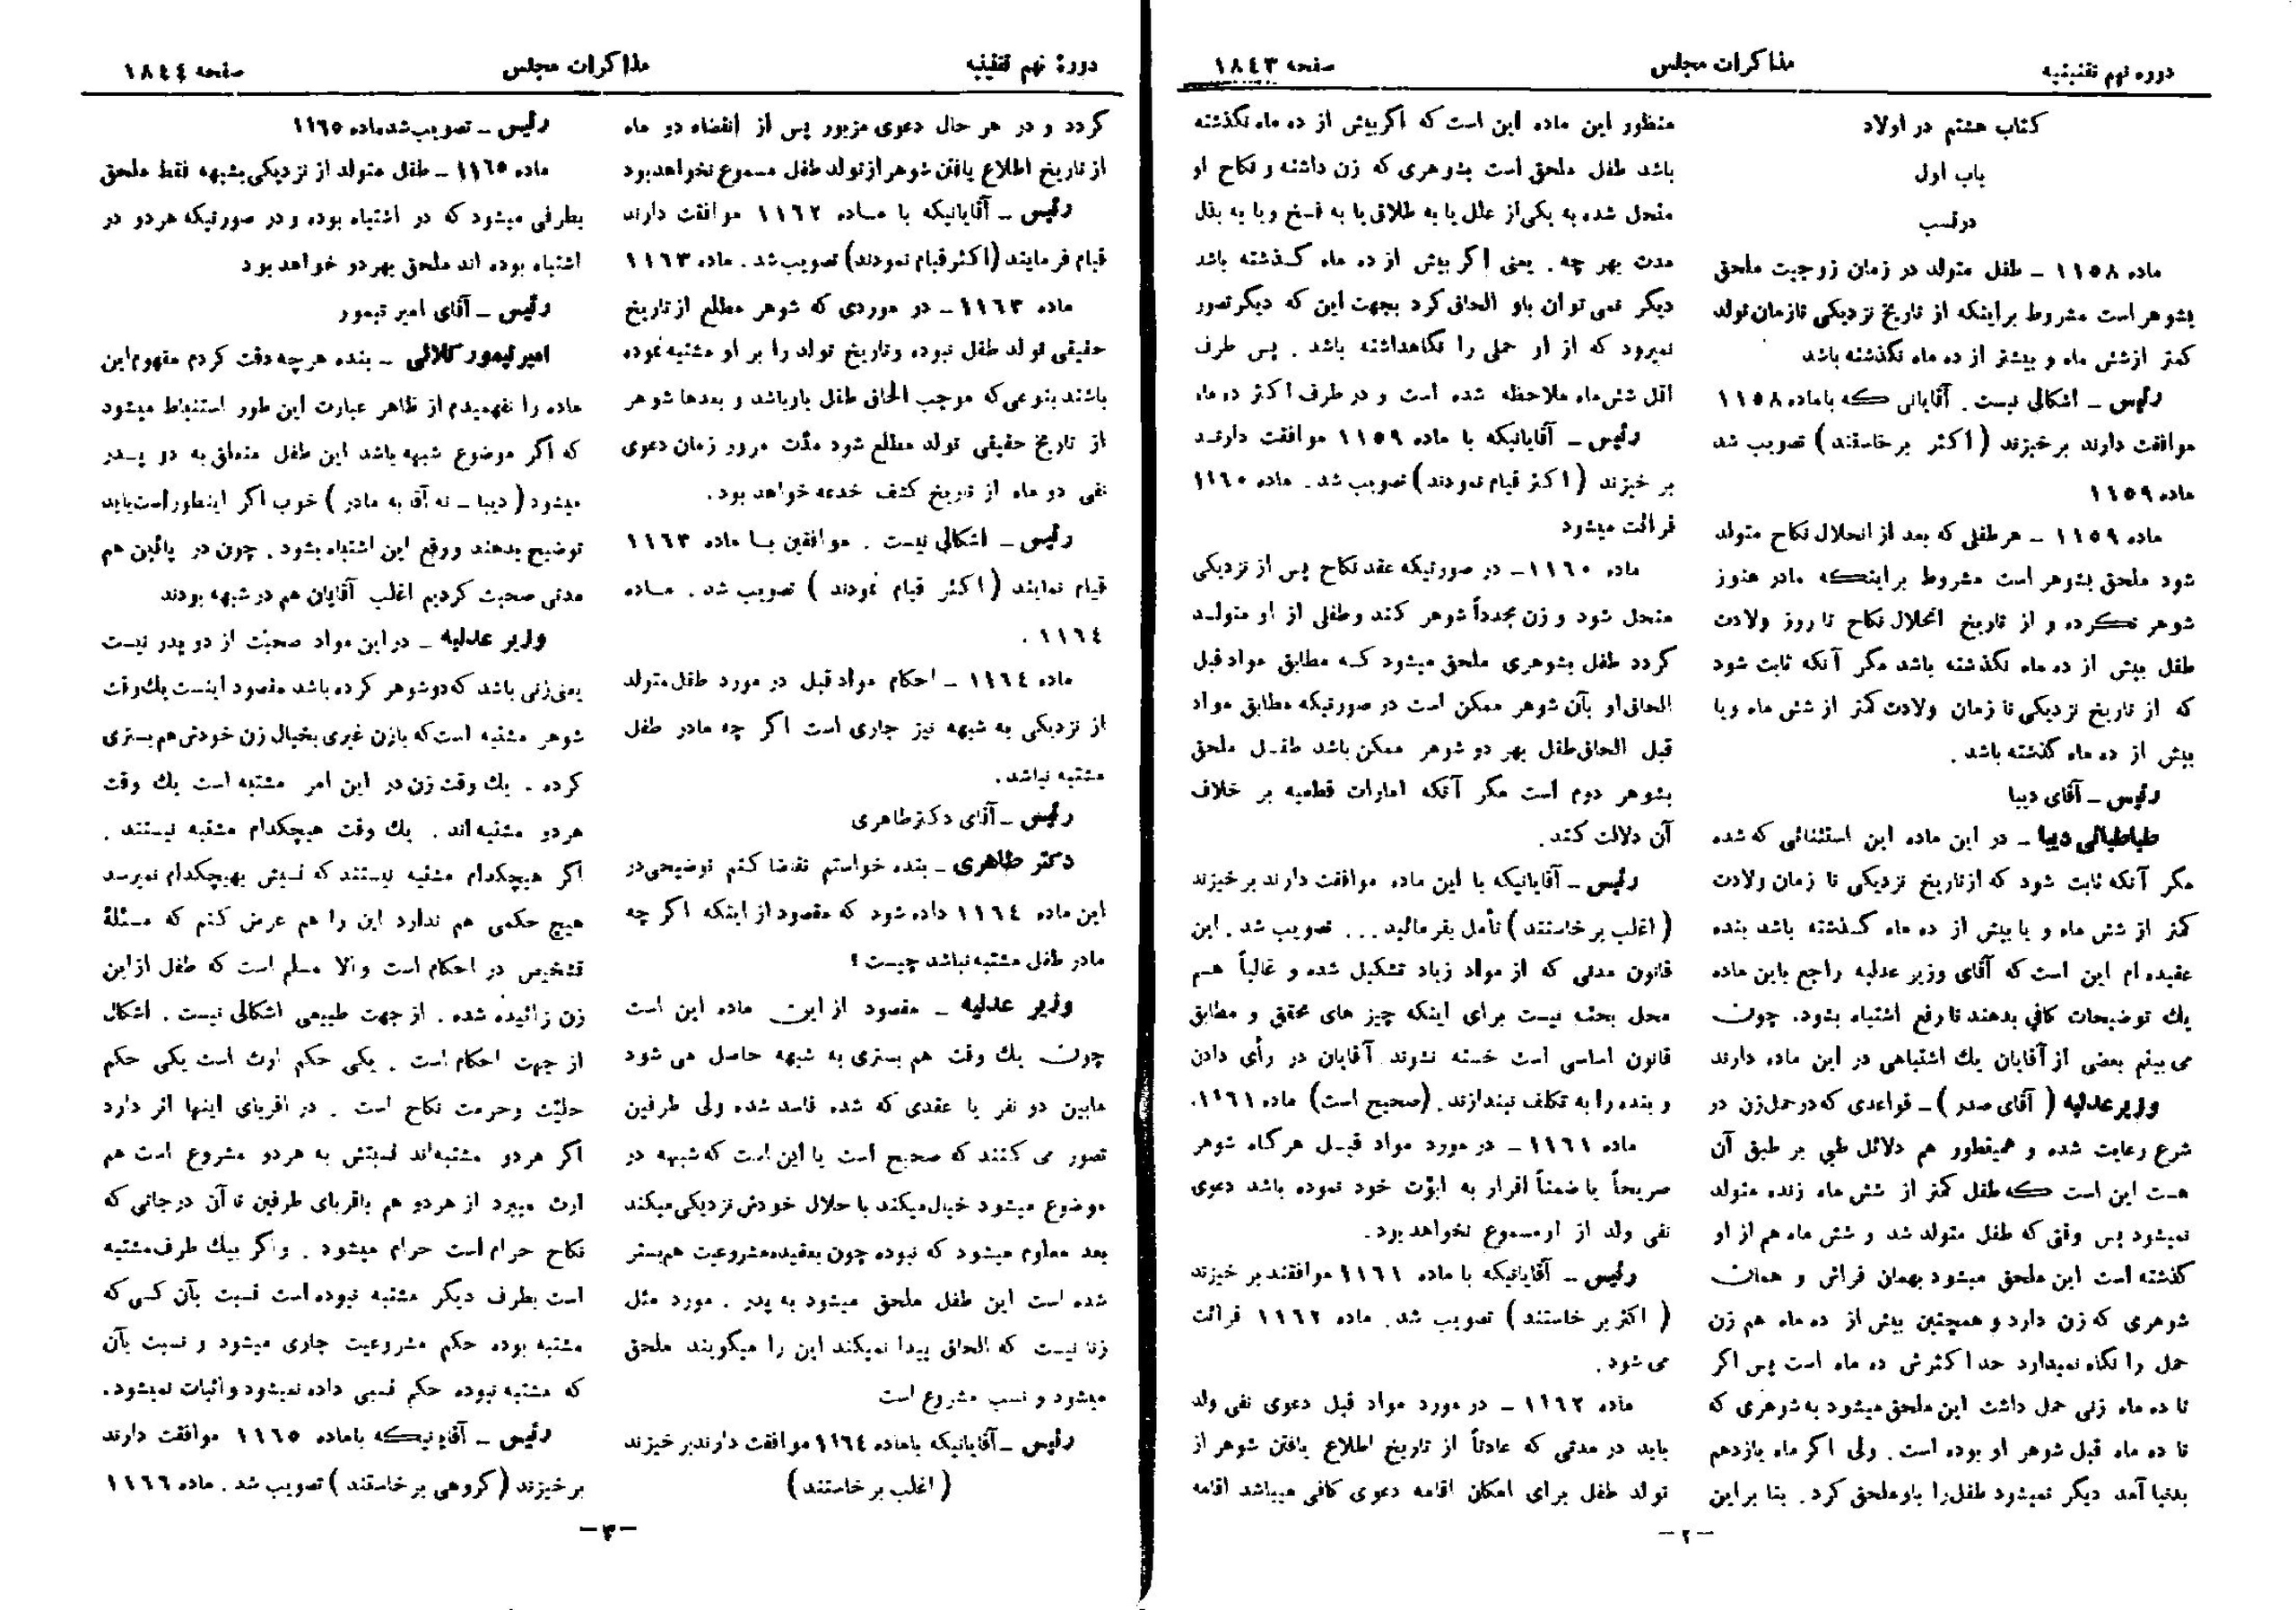 دوره نهم تقنینیه
مذاکرات مجلس
صفحه ۱۸٤۳
کتاب هشتم در اولاد
باب اول
در نسب
ماده ۱۱۵۸ ـ طفل متولد در زمان زوجیت ملحق
بشوهر است مشروط بر اینکه از تاریخ نزدیکی تا زمان تولد
کمتر از شش ماه و بیشتر از ده ماه نگذشته باشد
رئیس ـ اشکالی نیست . آقایانی که با ماده ۱۱۵۸
موافقت دارند برخیزند (اکثر برخاستند) تصویب شد
ماده ۱۱۵۹
ماده ۱۱۵۹ ـ هر طفلی که بعد از انحلال نکاح متولد
شود ملحق بشوهر است مشروط بر اینکه مادر هنوز
شوهر نکرده و از تاریخ انحلال نکاح تا روز ولادت
طفل بیش از ده ماه نگذشته باشد مگر آنکه ثابت شود
که از تاریخ نزدیکی تا زمان ولادت کمتر از شش ماه و یا
بیش از ده ماه گذشته باشد .
رئیس ـ آقای دیبا
طباطبائی دیبا ـ در این ماده این استثنائی که شده
مگر آنکه ثابت شود که از تاریخ نزدیکی تا زمان ولادت
کمتر از شش ماه و یا بیش از ده ماه گذشته باشد بنده
عقیده ام این است که آقای وزیر عدلیه راجع باین ماده
یک توضیحات کافی بدهند تا رفع اشتباه بشود. چون
می بینم بعضی از آقایان یک اشتباهی در این ماده دارند
وزیر عدلیه (آقای صدر) ـ قواعدی که در حمل زن در
شرع رعایت شده و همینطور هم دلائل طبی بر طبق آن
هست این است که طفل کمتر از شش ماه زنده متولد
نمیشود پس وقتی که طفل متولد شد و شش ماه هم از او
گذشته است این ملحق میشود بهمان فراش و همان
شوهری که زن دارد و همچنین بیش از ده ماه هم زن
حمل را نگاه نمیدارد حد اکثرش ده ماه است پس اگر
تا ده ماه زنی حمل داشت این ملحق میشود به شوهری که
تا ده ماه قبل شوهر او بوده است . ولی اگر ماه یازدهم
بدنیا آمد دیگر نمیشود طفل را باو ملحق کرد . بنا بر این
منظور این ماده این است که اگر بیش از ده ماه نگذشته
باشد طفل ملحق است بشوهری که زن داشته و نکاح او
منحل شده به یکی از علل یا به طلاق یا به فسخ و یا به بذل
مدت بهر چه . یعنی اگر بیش از ده ماه گذشته باشد
دیگر نمی توان باو الحاق کرد بجهت این که دیگر تصور
نمیرود که از او حملی را نگاهداشته باشد . پس طرف
اقل شش ماه ملاحظه شده است و در طرف اکثر ده ماه
رئیس ـ آقایانیکه با ماده ۱۱۵۹ موافقت دارند
بر خیزند (اکثر قیام نمودند) تصویب شد . ماده ۱۱٦۰
قرائت میشود
ماده ۱۱٦۰ ـ در صورتیکه عقد نکاح پس از نزدیکی
منحل شود و زن مجدداً شوهر کند و طفلی از او متولد
گردد طفل بشوهری ملحق میشود که مطابق مواد قبل
الحاق او بآن شوهر ممکن است در صورتیکه مطابق مواد
قبل الحاق طفل بهر دو شوهر ممکن باشد طفل ملحق
بشوهر دوم است مگر آنکه امارات قطعیه بر خلاف
آن دلالت کند .
رئیس ـ آقایانیکه با این ماده موافقت دارند برخیزند
(اغلب برخاستند) تأمل بفرمائید... تصویب شد . این
قانون مدنی که از مواد زیاد تشکیل شده و غالباً هم
محل بحث نیست برای اینکه چیز های محقق و مطابق
قانون اساسی است خسته نشوند آقایان در رأی دادن
و بنده را به تکلف نیندازند . (صحیح است) ماده ۱۱٦۱.
ماده ۱۱٦۱ ـ در مورد مواد قبل هر گاه شوهر
صریحاً یا ضمناً اقرار به ابوّت خود نموده باشد دعوی
نفی ولد از او مسموع نخواهد بود.
رئیس ـ آقایانیکه با ماده ۱۱٦۱ موافقند برخیزند
(اکثر برخاستند) تصویب شد. ماده ۱۱٦۲ قرائت
می شود .
ماده ۱۱٦۲ ـ در مورد مواد قبل دعوی نفی ولد
باید در مدتی که عادتاً از تاریخ اطلاع یافتن شوهر از
تولد طفل برای امکان اقامه دعوی کافی میباشد اقامه
ـ ۲ ـ
دورهٔ نهم تقنینیه
مذاکرات مجلس
صفحه ۱۸٤٤
گردد و در هر حال دعوی مزبور پس از انقضاء دو ماه
از تاریخ اطلاع یافتن شوهر از تولد طفل مسموع نخواهد بود
رئیس ـ آقایانیکه با ماده ۱۱٦۲ موافقت دارند
قیام فرمایند (اکثر قیام نمودند) تصویب شد . ماده ۱۱٦۳
ماده ۱۱٦۳ ـ در موردی که شوهر مطلع از تاریخ
حقیقی تولد طفل نبوده و تاریخ تولد را بر او مشتبه نموده
باشند بنوعی که موجب الحاق طفل باو باشد و بعدها شوهر
از تاریخ حقیقی تولد مطلع شود مدّت مرور زمان دعوی
نفی دو ماه از تاریخ کشف خدعه خواهد بود .
رئیس ـ اشکالی نیست . موافقین با ماده ۱۱٦۳
قیام نمایند (اکثر قیام نمودند) تصویب شد . ماده
۱۱٦٤ .
ماده ۱۱٦٤ ـ احکام مواد قبل در مورد طفل متولد
از نزدیکی به شبهه نیز جاری است اگر چه مادر طفل
مشتبه نباشد .
رئیس ـ آقای دکتر طاهری
دکتر طاهری ـ بنده خواستم تقاضا کنم توضیحی در
این ماده ۱۱٦٤ داده شود که مقصود از اینکه اگر چه
مادر طفل مشتبه نباشد چیست ؟
وزیر عدلیه ـ مقصود از این ماده این است
چون یک وقت هم بستری به شبهه حاصل می شود
مابین دو نفر یا عقدی که شده فاسد شده ولی طرفین
تصور می کنند که صحیح است یا این است که شبهه در
موضوع میشود خیال میکند با حلال خودش نزدیکی میکند
بعد معلوم میشود که نبوده چون بعقیده مشروعیت هم بستر
شده است این طفل ملحق میشود به پدر . مورد مثل
زنا نیست که الحاق پیدا نمیکند این را میگویند ملحق
میشود و نسب مشروع است
رئیس ـ آقایانیکه با ماده ۱۱٦٤ موافقت دارند برخیزند
(اغلب برخاستند)
رئیس ـ تصویب شد ماده ۱۱٦۵
ماده ۱۱٦۵ ـ طفل متولد از نزدیکی بشبهه فقط ملحق
بطرفی میشود که در اشتباه بوده و در صورتیکه هر دو در
اشتباه بوده اند ملحق بهر دو خواهد بود
رئیس ـ آقای امیر تیمور
امیر تیمور کلالی ـ بنده هر چه دقت کردم مفهوم این
ماده را نفهمیدم از ظاهر عبارت این طور استنباط میشود
که اگر موضوع شبهه باشد این طفل متعلق به دو پدر
میشود (دیبا ـ نه آقا به مادر) خوب اگر اینطور است باید
توضیح بدهند و رفع این اشتباه بشود . چون در پائین هم
مدتی صحبت کردیم اغلب آقایان هم در شبهه بودند
وزیر عدلیه ـ در این مواد صحبت از دو پدر نیست
یعنی زنی باشد که دو شوهر کرده باشد مقصود اینست یک وقت
شوهر مشتبه است که با زن غیری بخیال زن خودش هم بستری
کرده . یک وقت زن در این امر مشتبه است یک وقت
هر دو مشتبه اند . یک وقت هیچکدام مشتبه نیستند .
اگر هیچکدام مشتبه نیستند که نسبش بهیچکدام نمیرسد
هیچ حکمی هم ندارد این را هم عرض کنم که مسئلهٔ
تشخیص در احکام است و الا مسلم است که طفل از این
زن زائیده شده . از جهت طبیعی اشکالی نیست . اشکال
از جهت احکام است . یکی حکم ارث است یکی حکم
حلیّت و حرمت نکاح است . در اقربای اینها اثر دارد
اگر هر دو مشتبه اند نسبتش به هر دو مشروع است هم
ارث میبرد از هر دو هم باقربای طرفین تا آن درجاتی که
نکاح حرام است حرام میشود . و اگر بیک طرف مشتبه
است بطرف دیگر مشتبه نبوده است نسبت بآن کسی که
مشتبه بوده حکم مشروعیت جاری میشود و نسبت بآن
که مشتبه نبوده حکم نسبی داده نمیشود و اثبات نمیشود.
رئیس ـ آقایانیکه با ماده ۱۱٦۵ موافقت دارند
برخیزند (گروهی برخاستند) تصویب شد . ماده ۱۱٦٦
ـ ۳ ـ